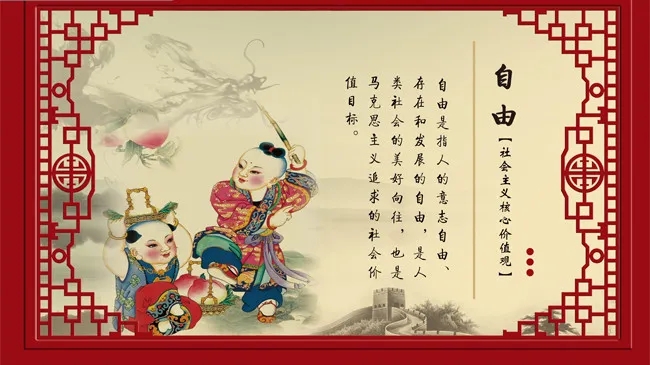 自由
【社会主义核心价值观】
自由是指人的意志自由、
存在和发展的自由，是人
类社会的美好向往，也是
马克思主义追求的社会价
值目标。